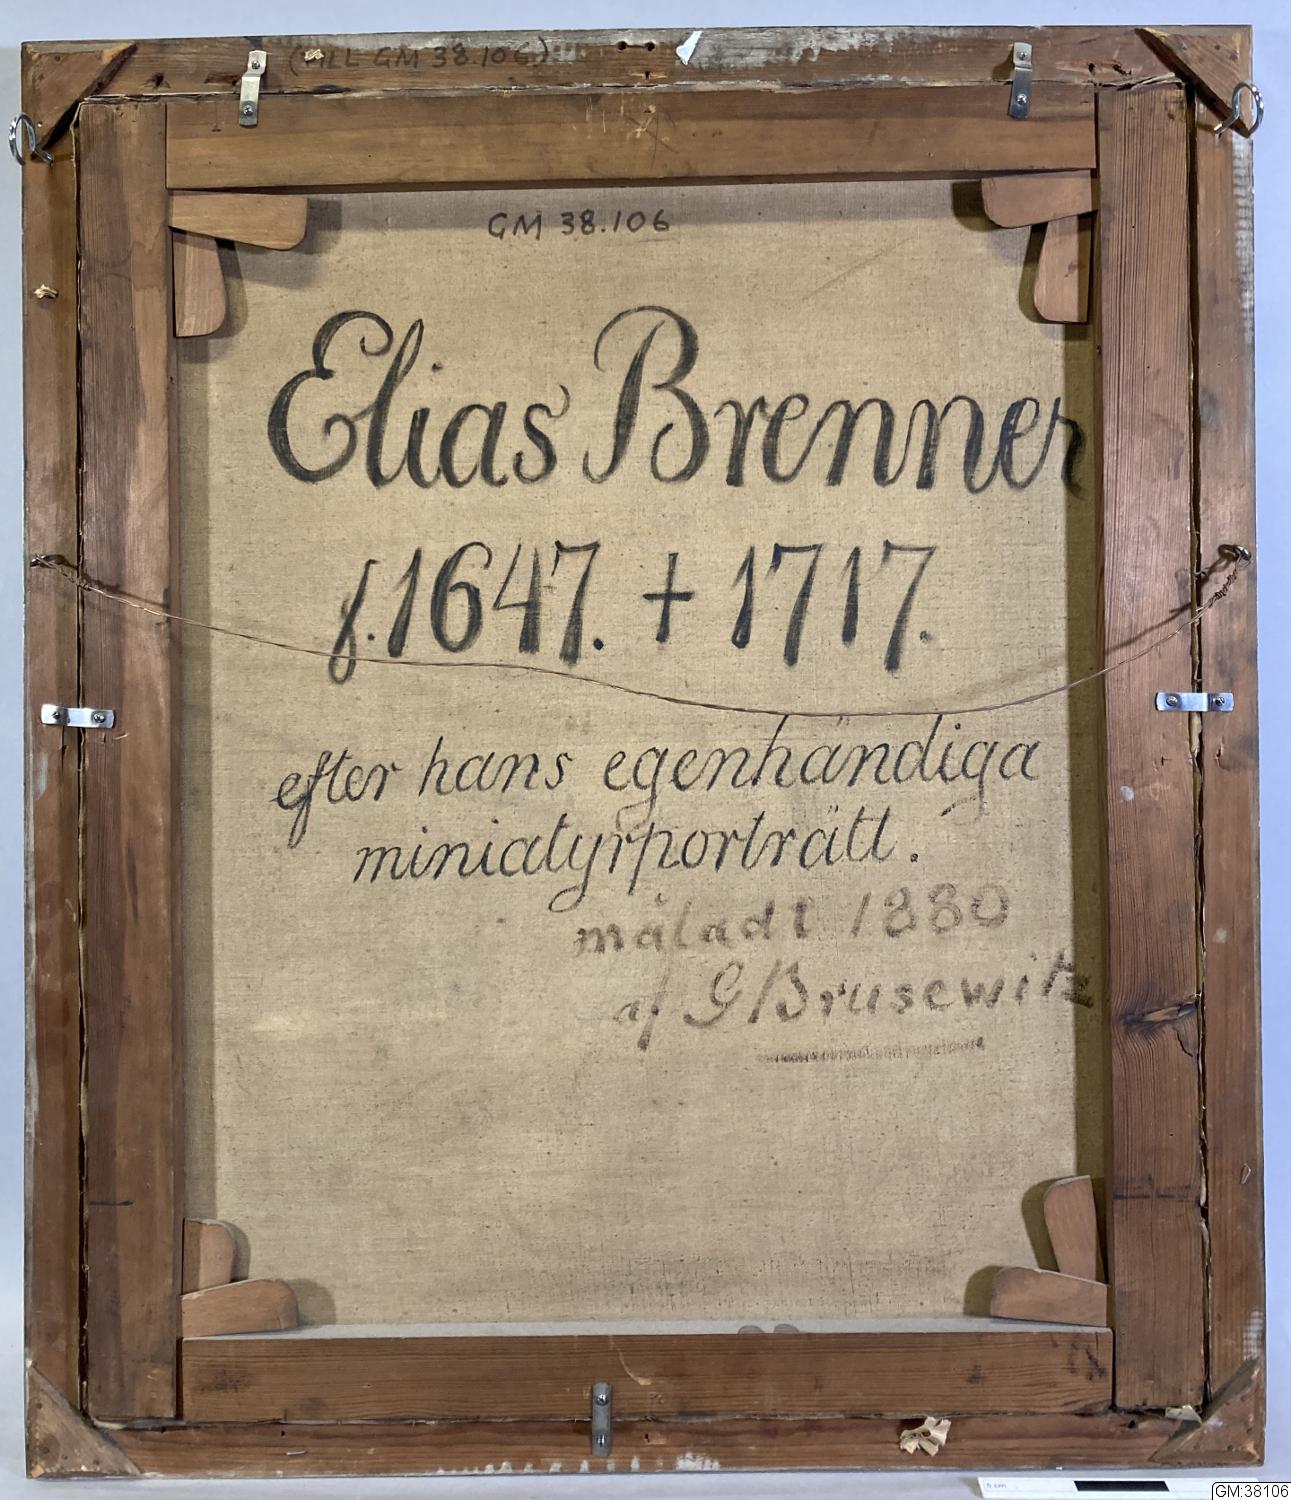 (TILL GM 38.106)
GM 38.106
Elias Brenner
f. 1647. + 1717.
efter hans egenhändiga
miniatyrporträtt.
måladt 1880
af G Brusewitz
5 cm
GM:38106